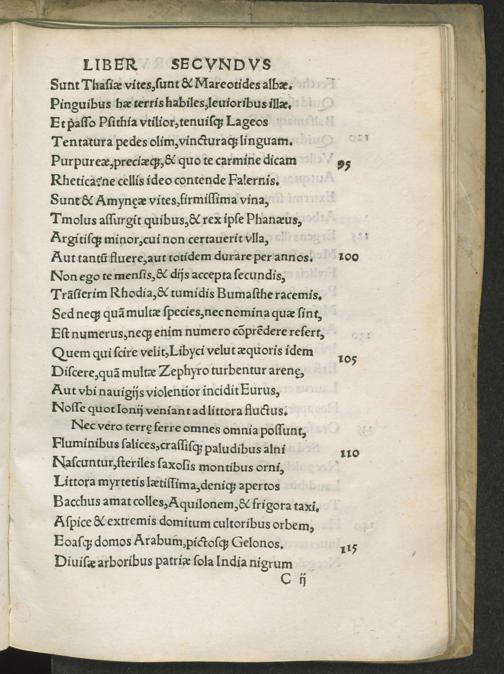 LIBER SECVNDVS
Sunt Thasiæ vites, sunt & Mareotides albæ.
Pinguibus hæ terris habiles, leuioribus illæ.
Et passo Psithia vtilior, tenuisq; Lageos
Tentatura pedes olim, vincturaq; linguam.
Purpureæ, preciæq;, & quo te carmine dicam 95
Rhetica: ne cellis ideo contende Falernis.
Sunt & Amyneæ vites, firmissima vina,
Tmolus assurgit quibus, & rex ipse Phanæus,
Argitisq; minor, cui non certauerit vlla,
Aut tantũ fluere, aut totidem durare per annos. 100
Non ego te mensis, & dijs accepta secundis,
Trãsierim Rhodia, & tumidis Bumasthe racemis.
Sed neq; quã multæ species, nec nomina quæ sint,
Est numerus, neq; enim numero cõprẽdere refert,
Quem qui scire velit, Libyci velut æquoris idem 105
Discere, quã multæ Zephyro turbentur arenę,
Aut vbi nauigijs violentior incidit Eurus,
Nosse quot Ionij veniant ad littora fluctus.
Nec vero terrę ferre omnes omnia possunt,
Fluminibus salices, crassisq; paludibus alni 110
Nascuntur, steriles saxosis montibus orni,
Littora myrtetis lætissima, deniq; apertos
Bacchus amat colles, Aquilonem, & frigora taxi.
Aspice & extremis domitum cultoribus orbem,
Eoasq; domos Arabum, pictosq; Gelonos. 115
Diuisæ arboribus patriæ sola India nigrum
C ij